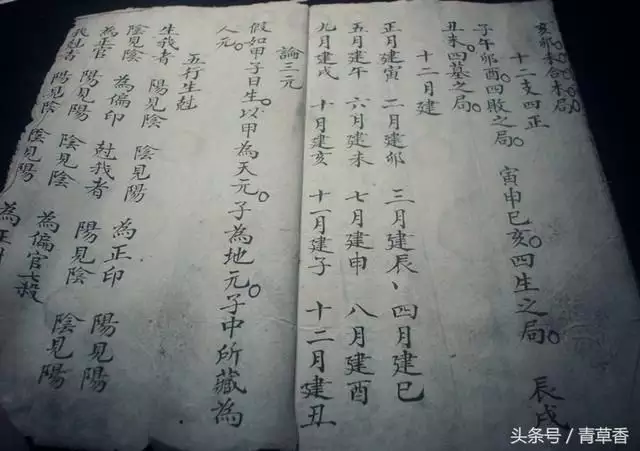 亥卯未合木局
十二支四正
子午卯酉。四敗之局。 寅申巳亥。四生之局。 辰戌
丑未。四墓之局。
十二月建
正月建寅 二月建卯 三月建辰、四月建巳
五月建午 六月建未 七月建申 八月建酉
九月建戌 十月建亥 十一月建子 十二月建丑
論三元
假如甲子日生。以甲為天元。子為地元。子中所藏為
人元。
五行生尅
生我者 陽見陰 陰見陽 為正印 陽見陽
陰見陰 為偏印 尅我者 陽見陰 陰見陽
為正官 陽見陽 陰見陰 為偏官七殺
我尅者 陽見陰 陰見陽 為正
头条号／青草香